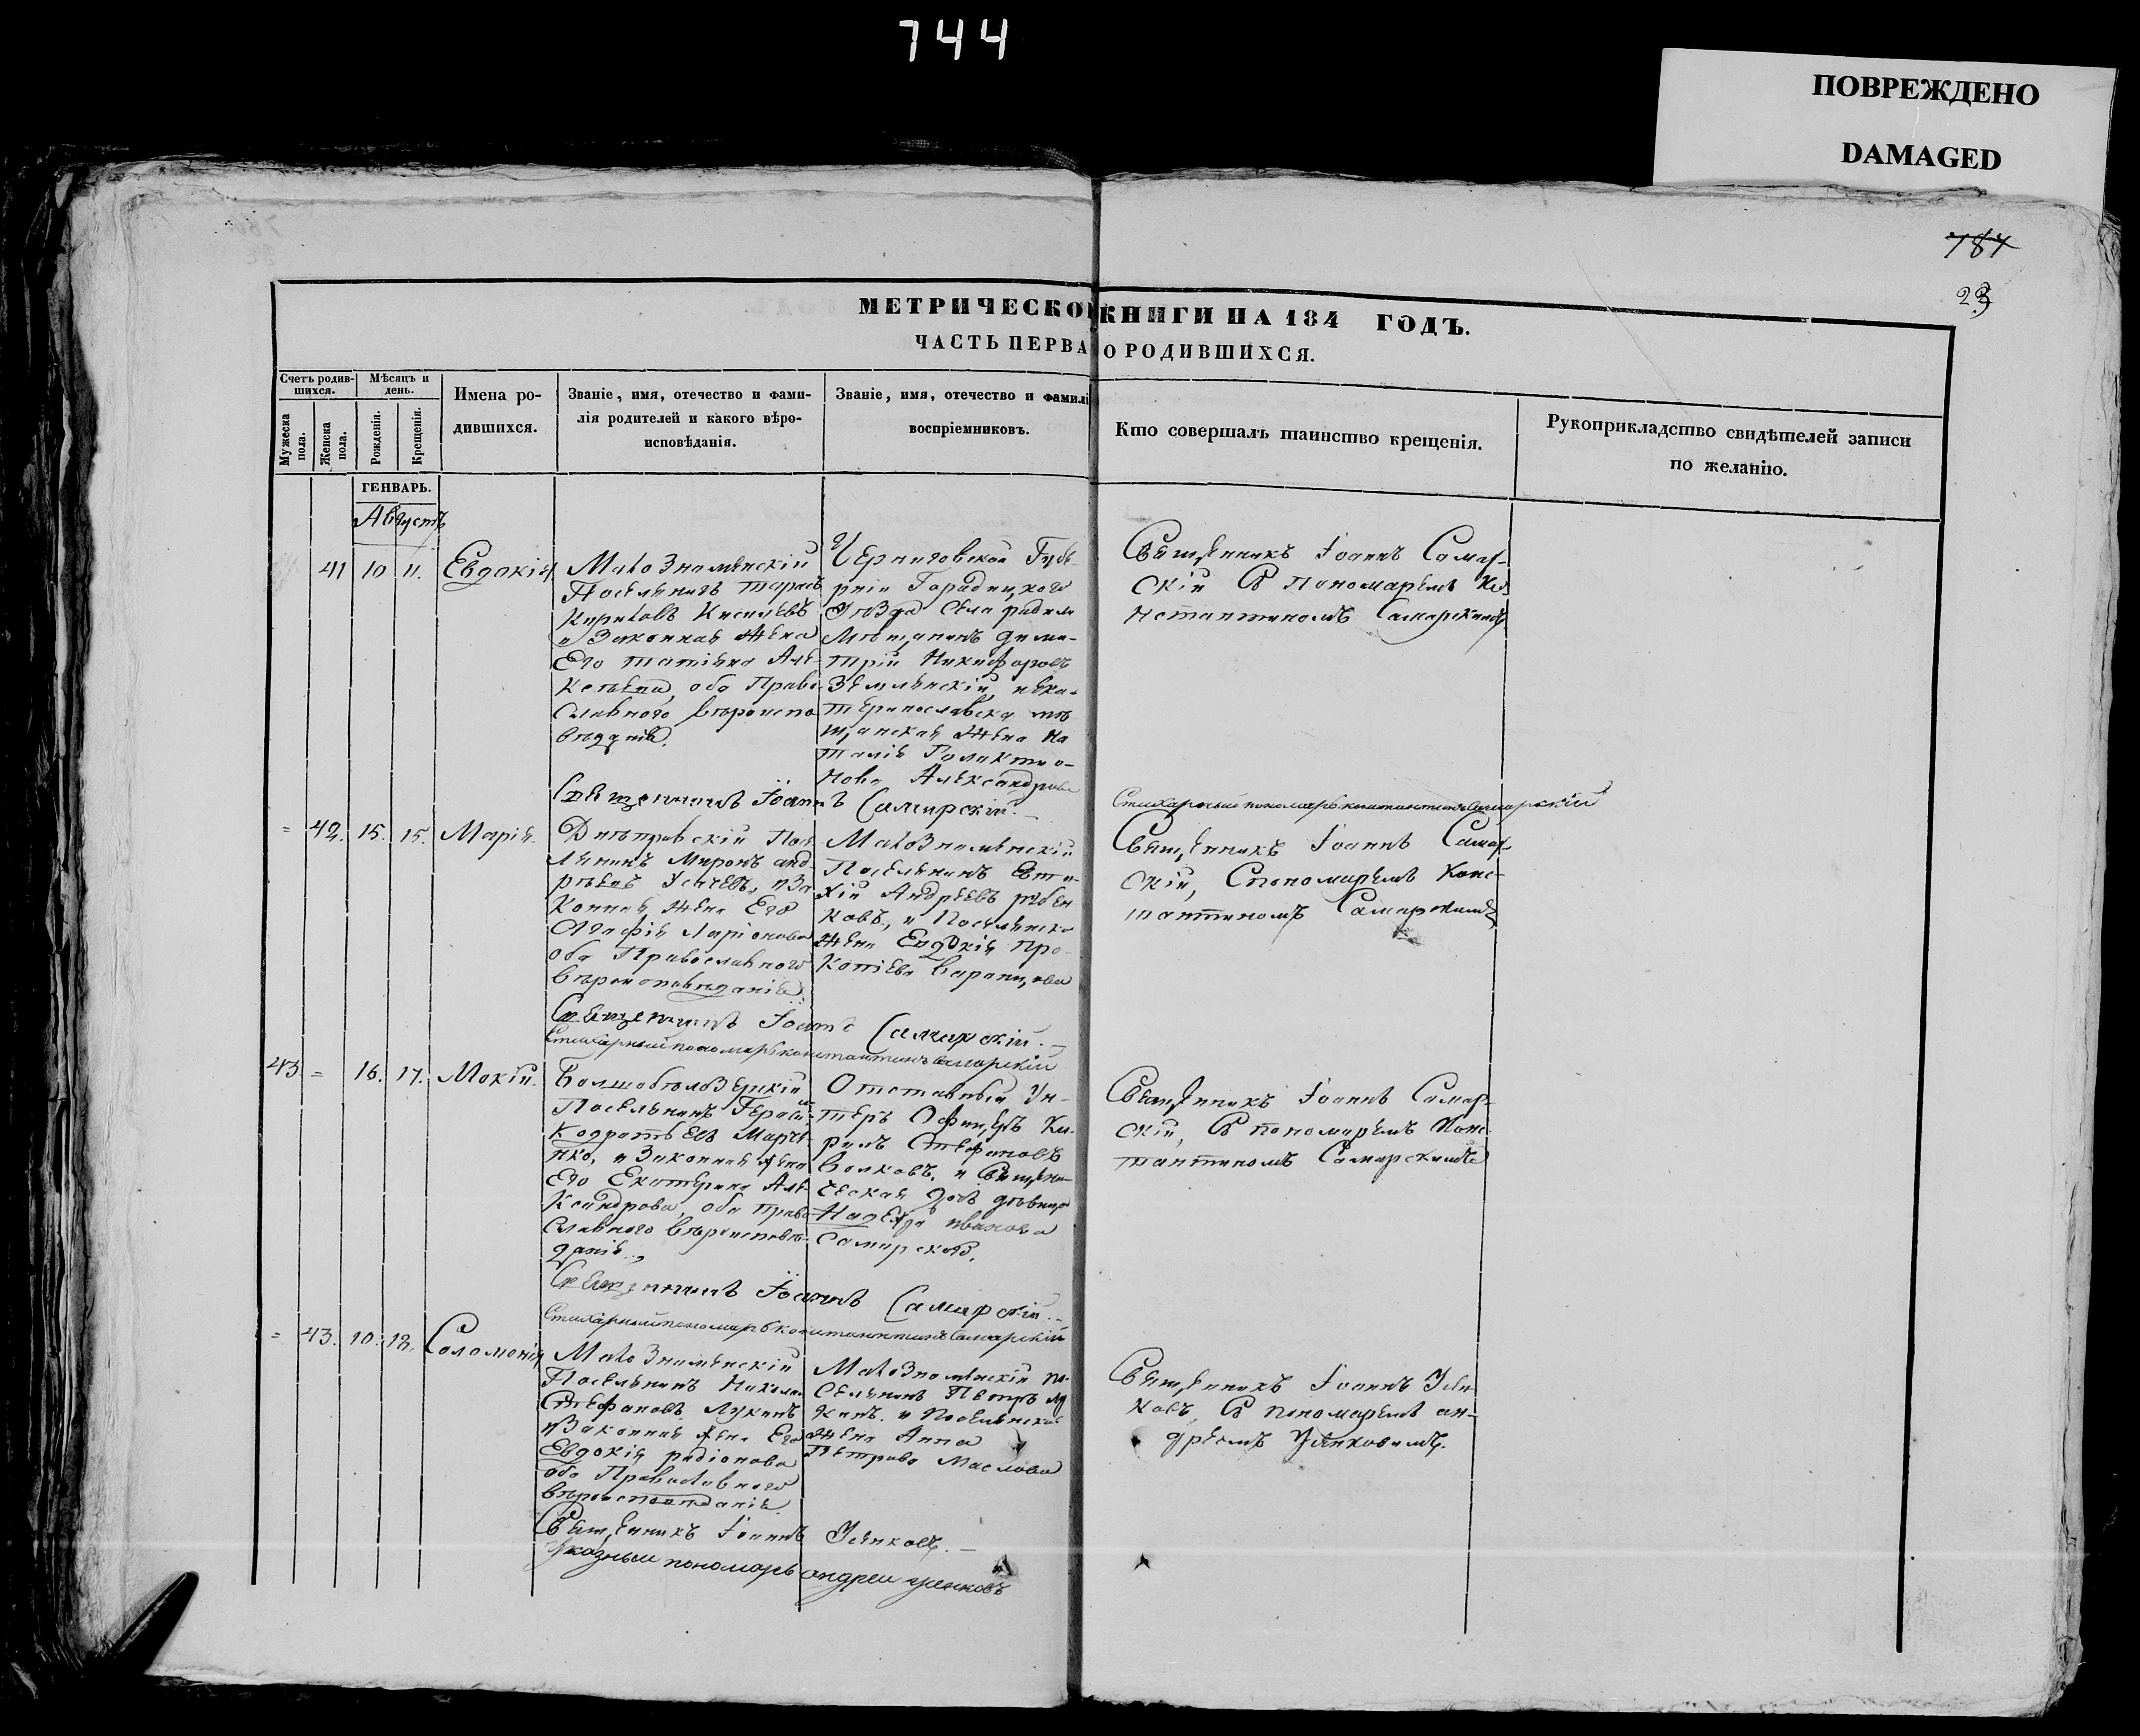 744
ПОВРЕЖДЕНО
DAMAGED
787
23
МЕТРИЧЕСКО КНИГИ НА 184 ГОДЪ.
ЧАСТЬ ПЕРВА О РОДИВШИХСЯ.
Счетъ родив-
шихся.
Мѣсяцъ и
день.
Мужеска
пола.
Женска
пола.
Рожденія.
Крещенія.
Имена ро-
дившихся.
Званіе, имя, отечество и фами-
лія родителей и какого вѣро-
исповѣданія.
Званіе, имя, отечество и фамилі
воспріемниковъ.
Кто совершалъ таинство крещенія.
Рукоприкладство свидѣтелей записи
по желанію.
ГЕНВАРЬ.
Августъ
41 10 11. Евдокія
Малознаменскій
Поселянинъ Тарасъ
Кириловъ Киселевъ
и Законная Жена
Его Татіяна Але-
обо Право-
Славного вѣроиспо
Черниговской Губе-
рніи Городницкого
Уезда Села
Мѣщанинъ Дими-
трій Никифоровъ
Землянскій, и Ека-
теринославска мѣ
щанская Жена На
талія Галактио-
нова Александрова
Священникъ Іоаннъ Самар-
скій С Пономаремъ Ко
нстантиномъ Самарскимъ
Священникъ Іоаннъ Самарскій.
Стихарный пономарь константинъ Самарскій
= 42. 15. 15. Марія.
Днѣпровскій Посе
лянинъ Миронъ Анд-
рѣевъ Усачевъ, и За
Конная Жена Его
Агафія Ларіонова
обо Православного
Вѣроисповѣданія
Малознаменскій
Поселянинъ Евти-
хій Андреевъ
ковъ, и Поселянска
Жена Евдокія Про-
Копіева
Священникъ Іоаннъ Самар-
скій, С пономаремъ Конс-
тантиномъ Самарскимъ
Священникъ Іоаннъ Самарскій.
Стихарный пономарь константинъ Самарскій
43 = 16. 17. Мокій.
Болшобѣлозерскій
Поселянинъ Гераси-
Кодратьевъ Марче-
нко, и Законная Жена
Его Екатерина Але-
Ксандрова, обо Право-
Славного Вѣроисповѣ-
данія.
Отставный Ун-
теръ Офицеръ Ки-
рилъ Стефановъ
Волковъ, и Священи-
ческая дочь дѣвица
Надежда иванова
Самарскова.
Священникъ Іоаннъ Самар-
скій, С пономаремъ Конс-
тантиномъ Самарскимъ
Священникъ Іоаннъ Самарскій.
Стихарный пономарь константинъ Самарскій
= 43. 10. 12. Соломонія
Малознаменскій
Поселянинъ Никола
Стефановъ Лукинъ
и Законная Жена Его
Евдокія радіонова
обо Православного
вѣроисповѣданія
Малознаменскій по-
селянинъ Петръ Лу
Кинъ. и Поселянская
Жена Анна
Петрова Маслова
Священникъ Іоаннъ Усен
ковъ, С пономаремъ ан-
дреемъ Усенковимъ.
Священникъ Іоаннъ Усенковъ.
Указный пономарь андреи усенковъ